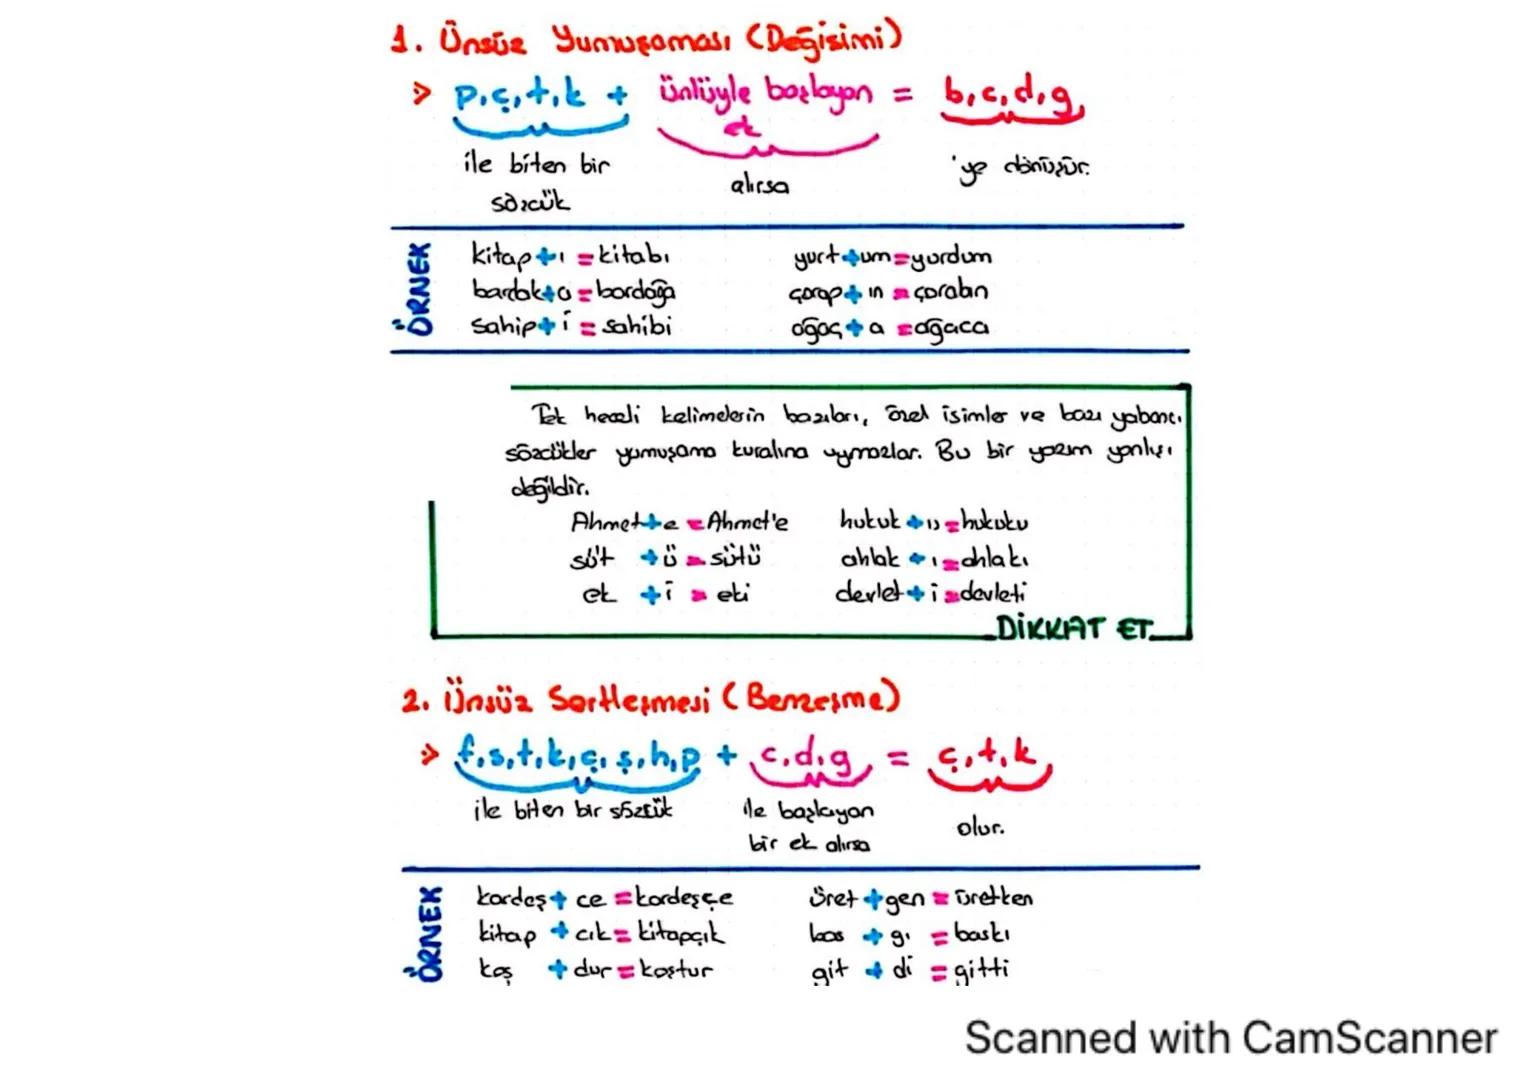 1. Ünsüz Yumuşaması (Değişimi)
> p,ç,t,k + ünlüyle başlayan = b,c,d,g,
ek
ile biten bir
sözcük
alırsa
'ye dönüşür.
ÖRNEK
kitap+ı = kitabı
bardak+a = bardağa
sahip+i = sahibi
yurt+um=yurdum
çorap+ın = çorabın
ağaç+a = ağaca
Tek heceli kelimelerin bazıları, özel isimler ve bazı yabancı
sözcükler yumuşama kuralına uymazlar. Bu bir yazım yanlışı
değildir.
Ahmet+e = Ahmet'e
süt +ü = sütü
et +i = eti
hukuk + u = hukuku
ahlak + ı = ahlakı
devlet + i = devleti
DİKKAT ET
2. Ünsüz Sertleşmesi (Benzeşme)
> f,s,t,k,ç,ş,h,p + c,d,g = ç,t,k
ile biten bir sözcük
ile başlayan
bir ek alırsa
olur.
ÖRNEK
kardeş+ ce = kardeşçe
kitap + cık = kitapçık
koş + dur = koştur
üret + gen = üretken
bas + gı = baskı
git + di = gitti
Scanned with CamScanner